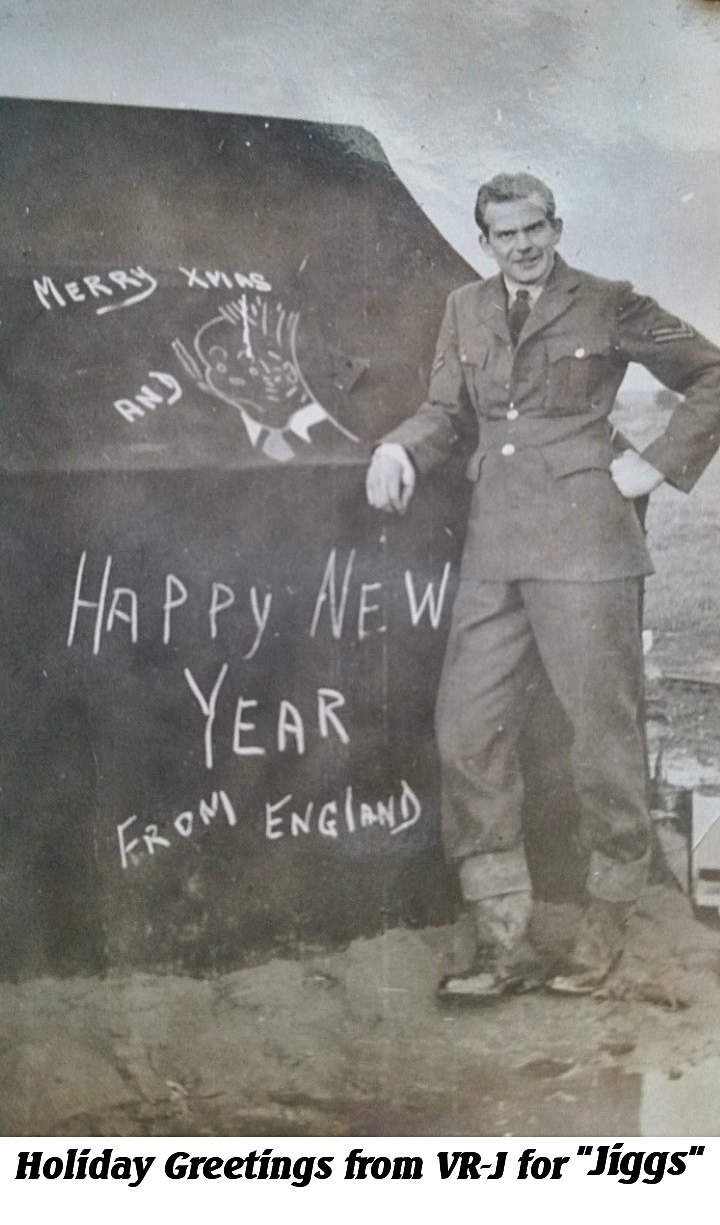 MERRY XMAS
AND
HAPPY NEW
YEAR
FROM ENGLAND
Holiday Greetings from VR-J for "Jiggs"